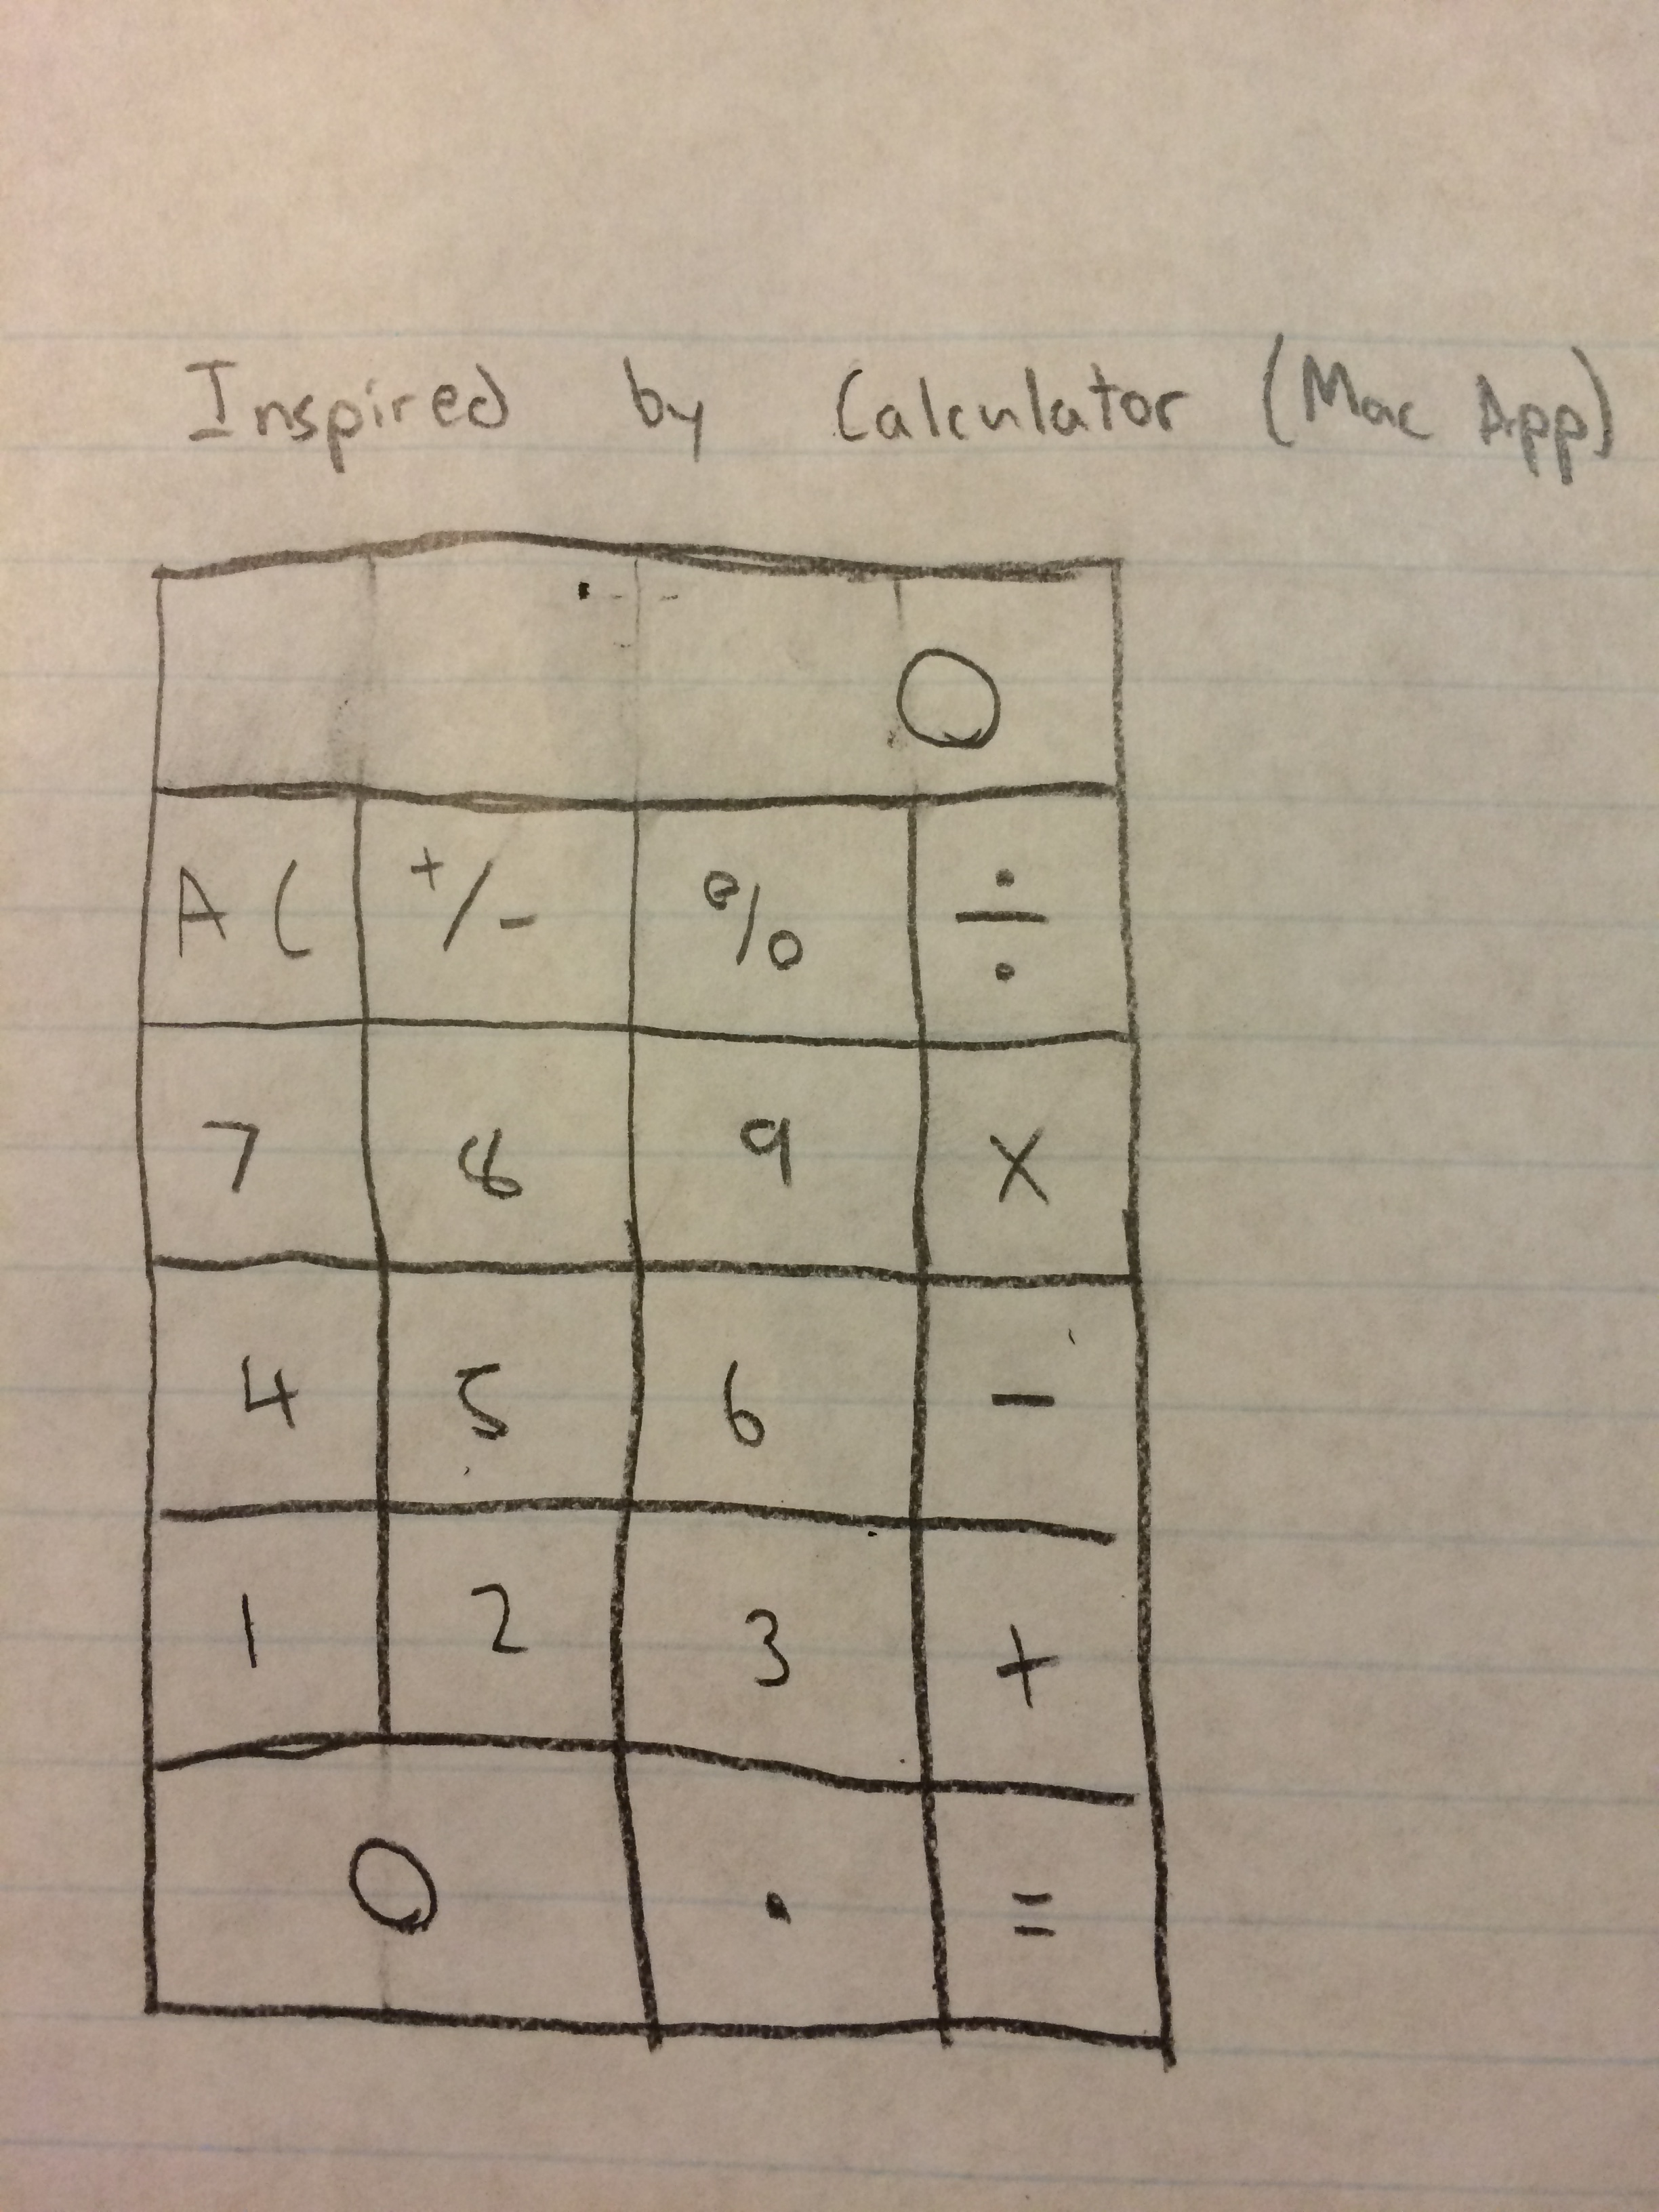 Inspired by Calculator (Mac App)
0
AC +/- % ÷
7 8 9 ×
4 5 6 -
1 2 3 +
0 . =